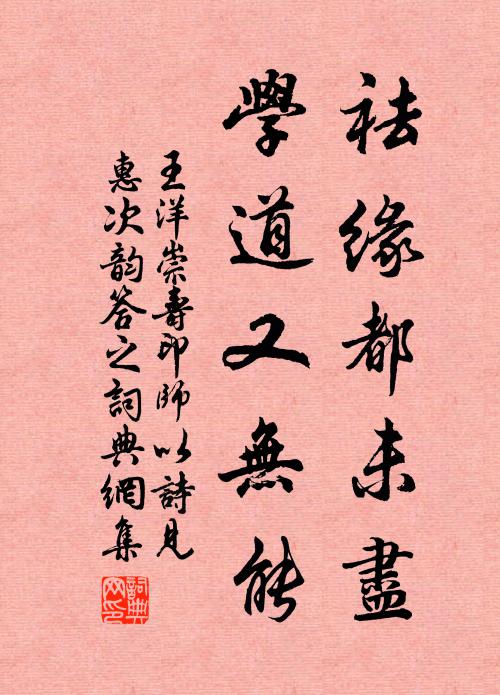 祛緣都未盡
學道又無能
王洋崇壽印師以詩見
惠次韵答之詞典網集
詞典網印